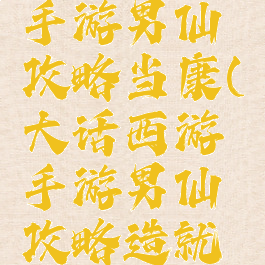 手游男仙
攻略当康(
大话西游
手游男仙
攻略造就